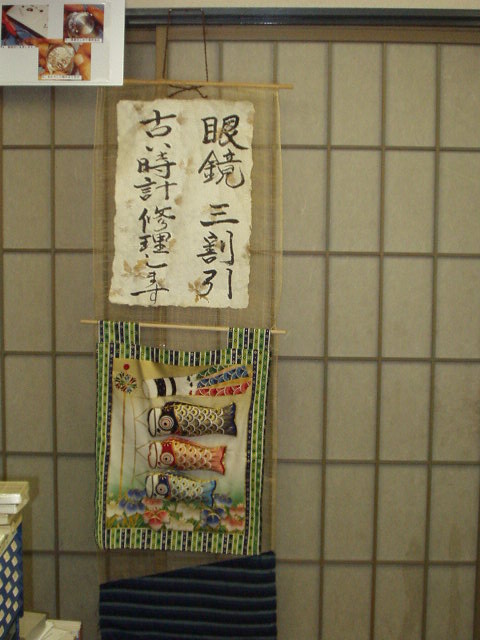 眼鏡 三割引
古い時計修理します